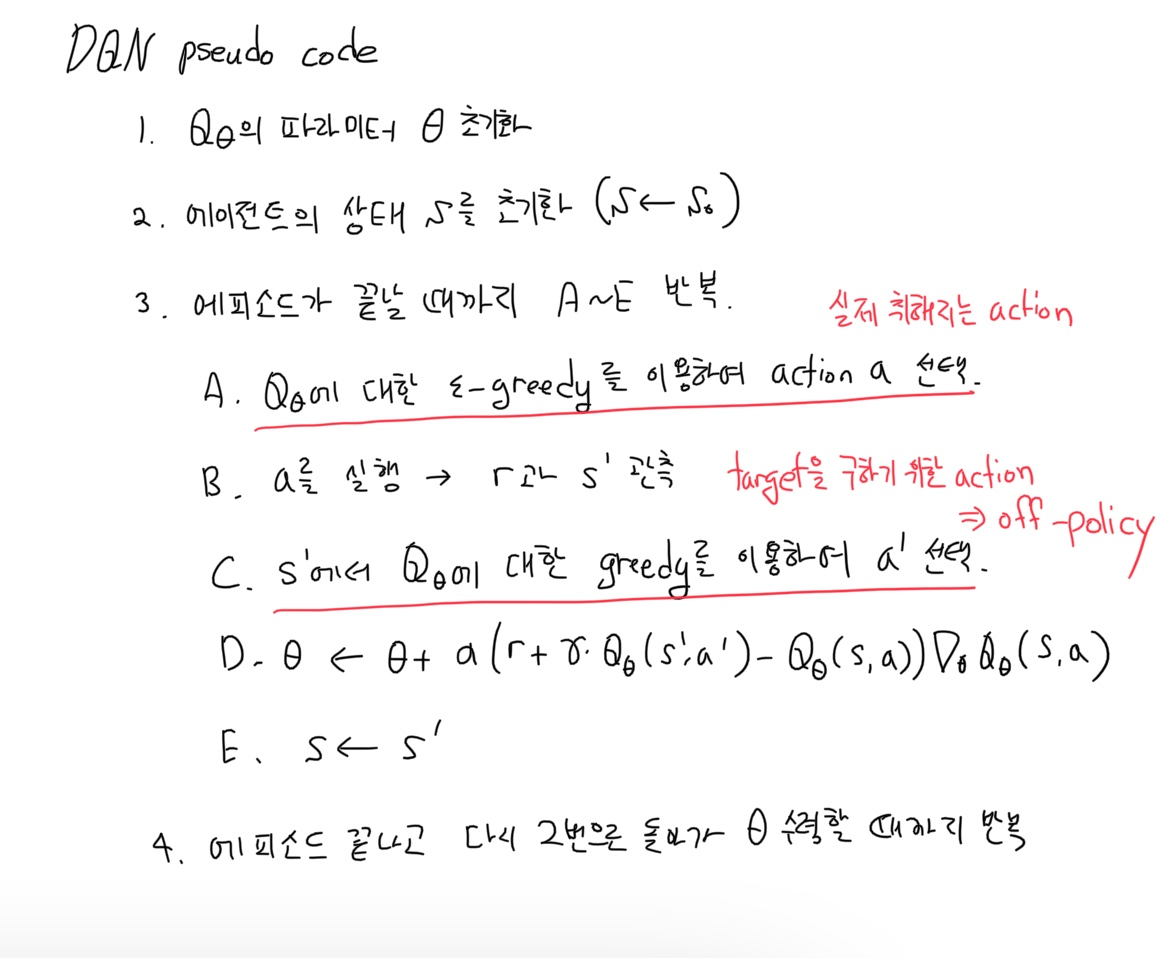 DQN pseudo code
1. Qθ의 파라미터 θ 초기화
2. 에이전트의 상태 s를 초기화 (s ← s₀)
3. 에피소드가 끝날 때까지 A~E 반복.
실제 취해지는 action
A. Qθ에 대한 ε-greedy를 이용하여 action a 선택.
B. a를 실행 → r과 s' 관측
target을 구하기 위한 action
⇒ off-policy
C. s'에서 Qθ에 대한 greedy를 이용하여 a' 선택.
D. θ ← θ + a(r + γ·Qθ(s',a') - Qθ(s,a))∇θQθ(s,a)
E. s ← s'
4. 에피소드 끝나고 다시 2번으로 돌아가 θ 수렴할 때까지 반복